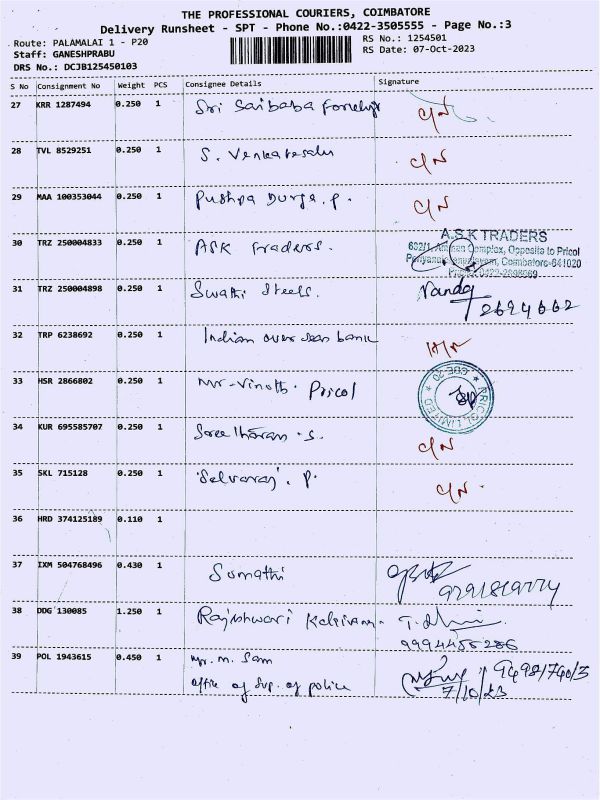 THE PROFESSIONAL COURIERS, COIMBATORE
Delivery Runsheet - SPT - Phone No.:0422-3505555 - Page No.:3
Route: PALAMALAI 1 - P20
RS No.: 1254501
Staff: GANESHPRABU
RS Date: 07-Oct-2023
DRS No.: DCJB125450103
S No Consignment No Weight PCS Consignee Details Signature
27 KRR 1287494 0.250 1 Sri Saibaba C/N
28 TVL 8529251 0.250 1 S. Venkatesalu C/N
29 MAA 100353044 0.250 1 Pushpa Durga. P. C/N
30 TRZ 250004833 0.250 1 ASK Traders.
A.S.K TRADERS
Complex, Opposite to Pricol
Coimbatore-641020
31 TRZ 250004898 0.250 1 Swathi Steels. Nanda
2694662
32 TRP 6238692 0.250 1 Indian overseas bank
33 HSR 2866802 0.250 1 Mr-Vinoth. Pricol
PRICOL LIMITED
34 KUR 695585707 0.250 1 Sreetharan .S. C/N
35 SKL 715128 0.250 1 Selvaraj. P. C/N
36 HRD 374125189 0.110 1
37 IXM 504768496 0.430 1 Sumathi
38 DDG 130085 1.250 1 Rajeshwari
9994455286
39 POL 1943615 0.450 1 Mr. M. Sam
office of Sup. of police
7/10/23